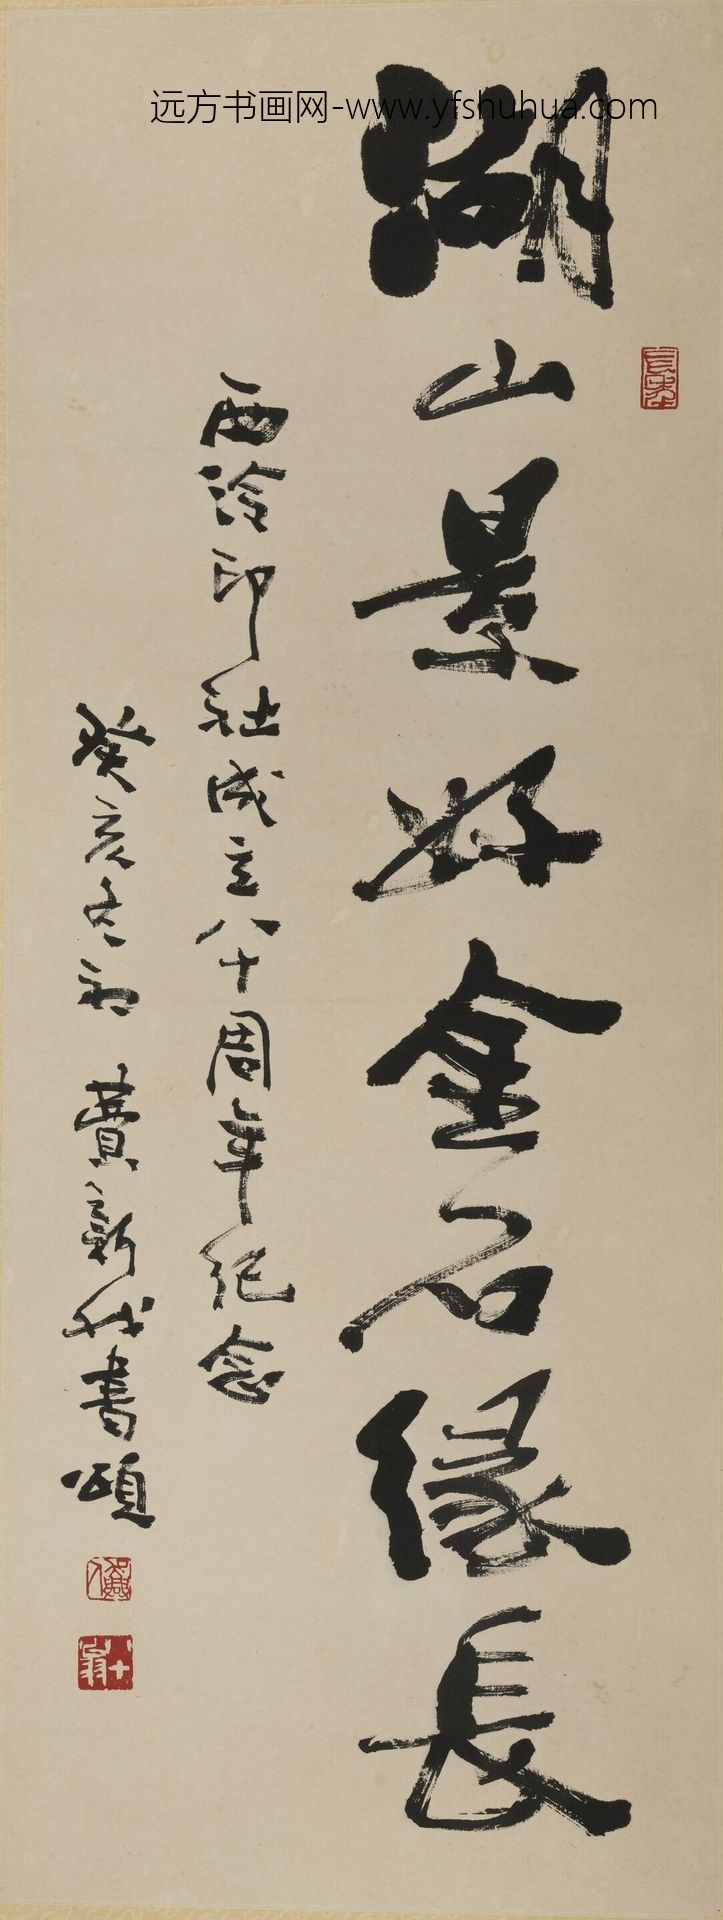 远方书画网-www.yfshuhua.com
湖山景好金石缘長
西泠印社成立八十周年纪念
癸亥冬初 費新我書頌